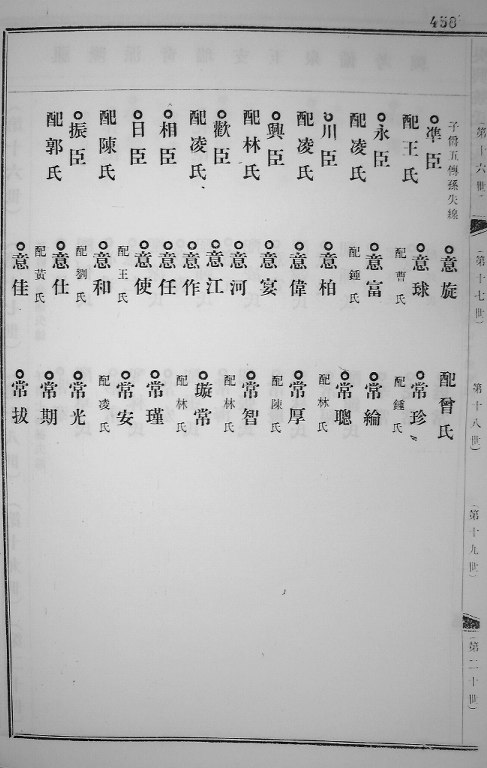 458
(第十六世)
子僑五傳孫失線
凖臣
配王氏
永臣
配凌氏
川臣
配凌氏
興臣
配林氏
歡臣
配凌氏
相臣
日臣
配陳氏
振臣
配郭氏
(第十七世)
意旋
意球
配曹氏
意富
配鍾氏
意柏
意偉
意宴
意河
意江
意作
意任
意使
配王氏
意和
配劉氏
意仕
配黃氏
意佳
(第十八世)
配曾氏
常珍
配鍾氏
常綸
常聰
配林氏
常厚
配陳氏
常智
配林氏
璇常
配林氏
常瑾
常安
配凌氏
常光
常期
常拔
(第十九世)
(第二十世)